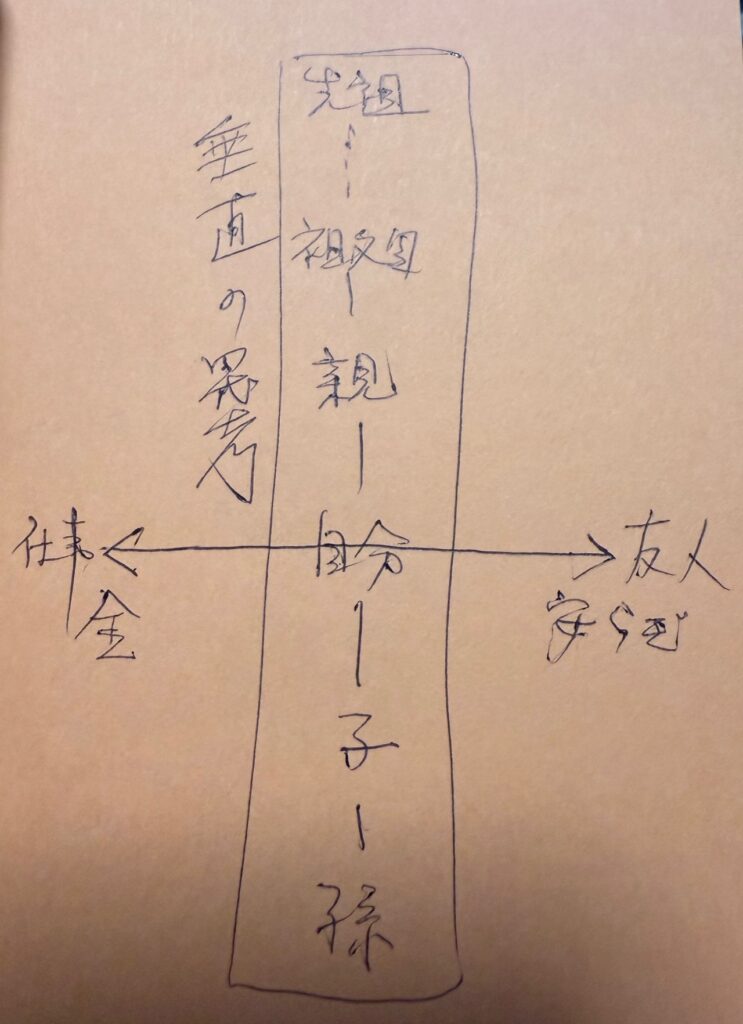 垂直の思考
先祖
祖父母
親
自分
子
孫
仕事
金
友人
安らぎ